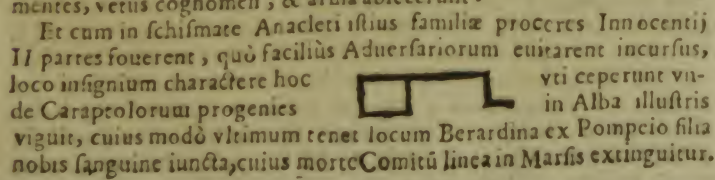 mentes, vetus cognomen, & arma abiecerunt.
Et cum in schismate Anacleti istius familiæ proceres Innocentij
II partes fouerent, quò faciliùs Aduersariorum euitarent incursus,
loco insignium charactere hoc vti ceperunt vn-
de Caraptolorum progenies in Alba illustris
viguit, cuius modò vltimum tenet locum Berardina ex Pompeio filia
nobis sanguine iuncta, cuius morte Comitũ linea in Marsis extinguitur.